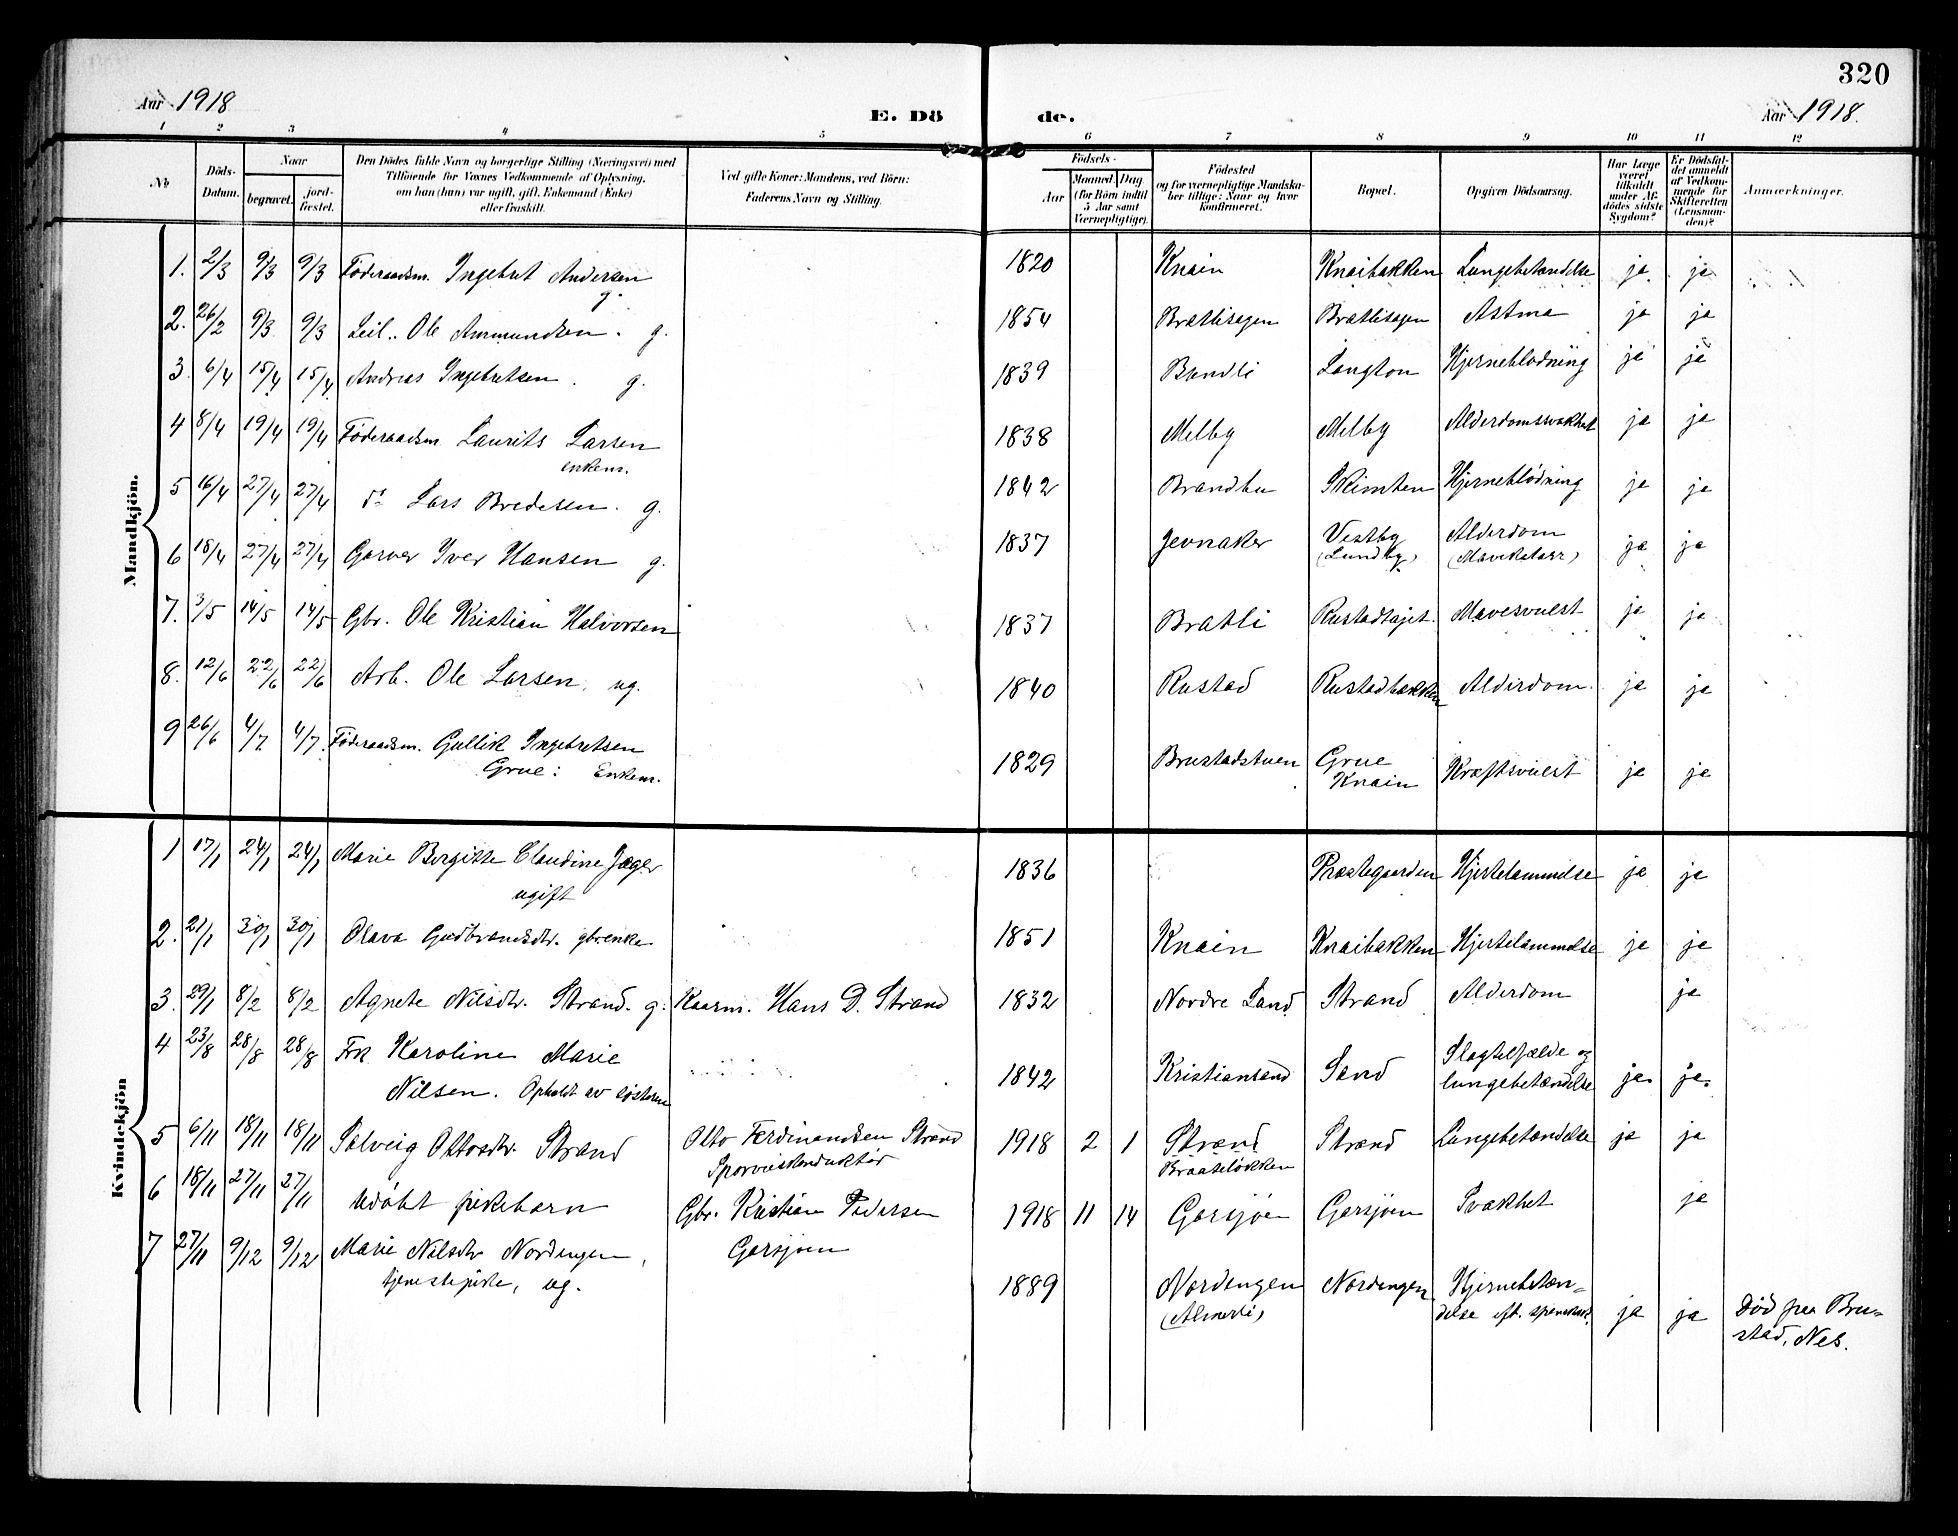 320
Aar 1918
E. Dö de.
Aar 1918.
1 2 3 4 5 6 7 8 9 10 11 12
No
Döds-
Datum.
Naar
begravet.
jord-
fæstet.
Den Dödes fulde Navn og borgerlige Stilling (Næringsvei) med
Tilföiende for Voxnes Vedkommende af Oplysning,
om han (hun) var ugift, gift, Enkemand (Enke)
eller fraskilt.
Ved gifte Koner: Mandens, ved Börn:
Faderens Navn og Stilling.
Födsels-
Aar
Maaned. Dag.
(for Börn indtil
5 Aar samt
Værnepligtige).
Födested
og for værnepligtige Mandska-
ber tillige: Naar og hvor
konfirmeret.
Bopæl.
Opgiven Dödsaarsag.
Har Læge
været
tilkaldt
under Af-
dödes sidste
Sygdom?
Er Dödsfal-
det anmeldt
af Vedkom-
mende for
Skifteretten
(Lensman-
den)?
Anmærkninger.
Mandkjön.
1. 2/3 9/3 9/3 Föderaadsm. Ingebret Andersen 1820 Knain Knaibakken Lungebetændelse ja ja
g.
2. 26/2 9/3 9/3 Leil.. Ole Ammundsen. g. 1854 Brætlisagen Bratlisagen Astma ja ja
3. 6/4 15/4 15/4 Andreas Ingebretsen. g. 1839 Bandli Langton Hjerneblødning ja ja
4 8/4 19/4 19/4 Föderaadsm Laurits Larsen 1838 Melby Melby Alderdomssvakhet ja ja
enkem.
5 16/4 27/4 27/4 do Lars Bredesen. g. 1842 Brandbu Skimten Hjerneblödning ja ja
6 18/4 27/4 27/4 Garver Iver Hansen g. 1837 Jevnaker Vestby Alderdom ja ja
(Lundby) (Mavekatarr)
7. 3/5 14/5 14/5 Gbr. Ole Kristian Halvorsen 1837 Bratli Rustadtajet. Mavesvulst ja ja
8. 12/6 22/6 22/6 Arb. Ole Larsen, ug. 1840 Rustad Rustadbakken Alderdom. ja ja
9 26/6 4/7 4/7. Föderaadsm. Gullik Ingebretsen 1829 Brustadstuen Grue Kræftsvulst ja ja
Grue: Enkem. Knain
Kvindekjön
1 17/1 24/1 24/1 Marie Birgitte Claudine Jæger 1836 Præstegaarden Hjertelammelse ja ja
ugift
2. 21/1 30/1 30/1 Olava Gudbrandsdtr. gbrenke 1851 Knain Knaibakken Hjertelammelse ja ja
3. 29/1 8/2 8/2 Agnete Nilsdtr. Strand. g. Kaarm. Hans D. Strand 1832 Nordre Land Strand Alderdom ja
4 23/8 28/8 28/8 Frk Karoline Marie 1842 Kristiansand Sand Slagtilfælde og
Nilsen. Opholdt av søsteren lungebetændelse ja. ja.
5 6/11 18/11 18/11 Solveig Ottosdtr. Strand Otto Ferdinandsen Strand 1918 2 1 Strand Strand Lungebetændelse ja ja
Sporveiskonduktör Braateløkken
6 18/11 27/11 27/11 Udöbt pikebarn Gbr. Kristian Pedersen 1918 11 14 Garsjøen Garsjøen Svakhet ja
Garsjøen
7 27/11 9/12 9/12 Marie Nilsdtr Nordengen, 1889 Nordengen Nordengen Hjernebetæn-
tjenestepike, ug. (Almerli) delse eft. ja ja Död paa Bru-
stad, Nes.